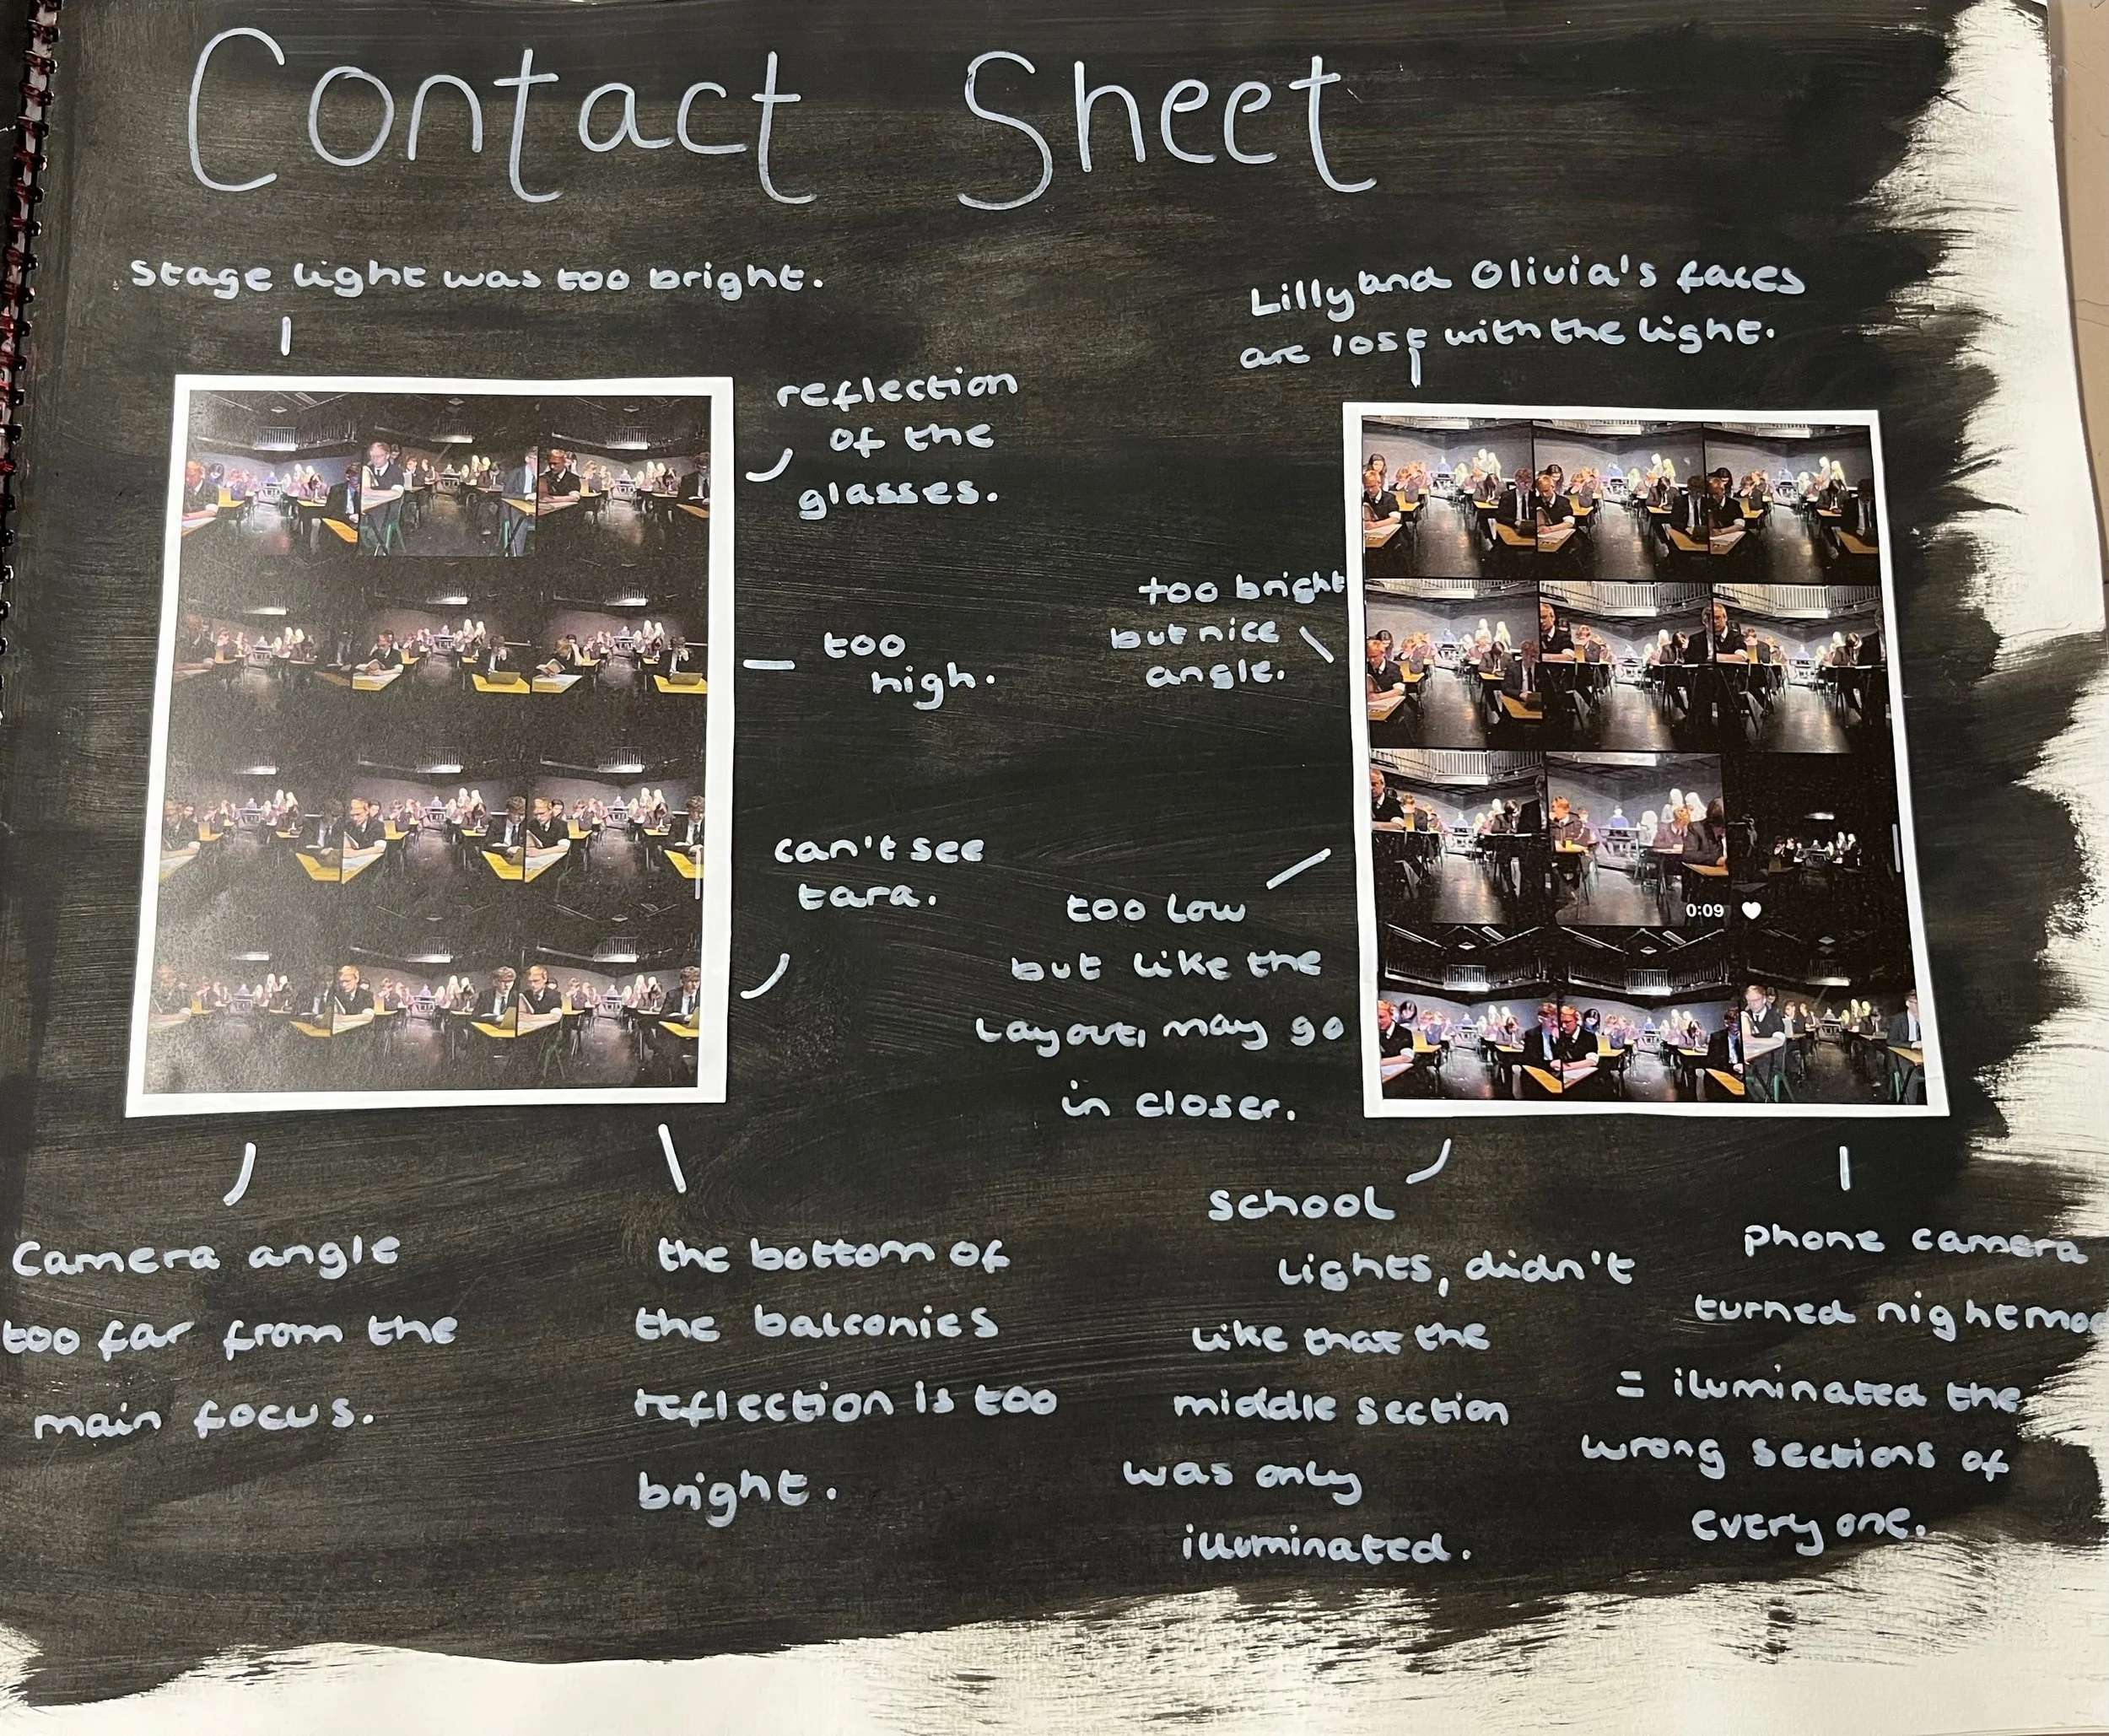 Contact Sheet
Stage light was too bright.
reflection
of the
glasses.
too
high.
can't see
tara.
Camera angle
too far from the
main focus.
the bottom of
the balconies
reflection is too
bright.
Lilly and Olivia's faces
are lost with the light.
too bright
but nice
angle.
too low
but like the
layout, may go
in closer.
0:09
school
lights, didn't
like that the
middle section
was only
illuminated.
phone camera
turned nightmod
= iluminated the
wrong sections of
every one.